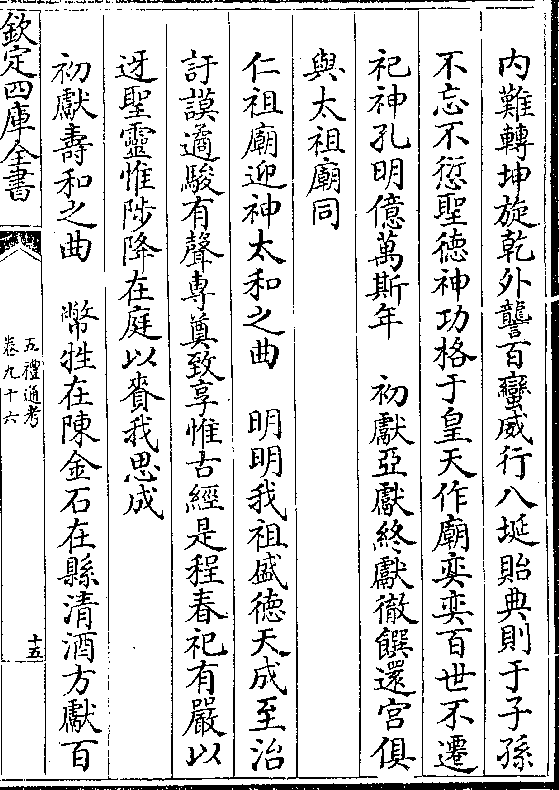 内難轉坤旋乾外讋百蠻威行八埏貽典則于子孫
不忘不愆聖德神功格于皇天作廟奕奕百世不遷
祀神孔明億萬斯年　初獻亞獻終獻徹饌還宫俱
與太祖廟同
仁祖廟迎神太和之曲　明明我祖盛德天成至治
訏謨遹駿有聲專奠致享惟古經是程春祀有嚴以
迓聖靈惟陟降在庭以賚我思成
初獻壽和之曲　幣牲在陳金石在縣清酒方獻百
欽定四庫全書
五禮通考
卷九十六
十五